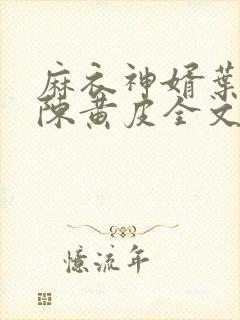 麻衣神婿葉
陳黃皮全文
憶流年